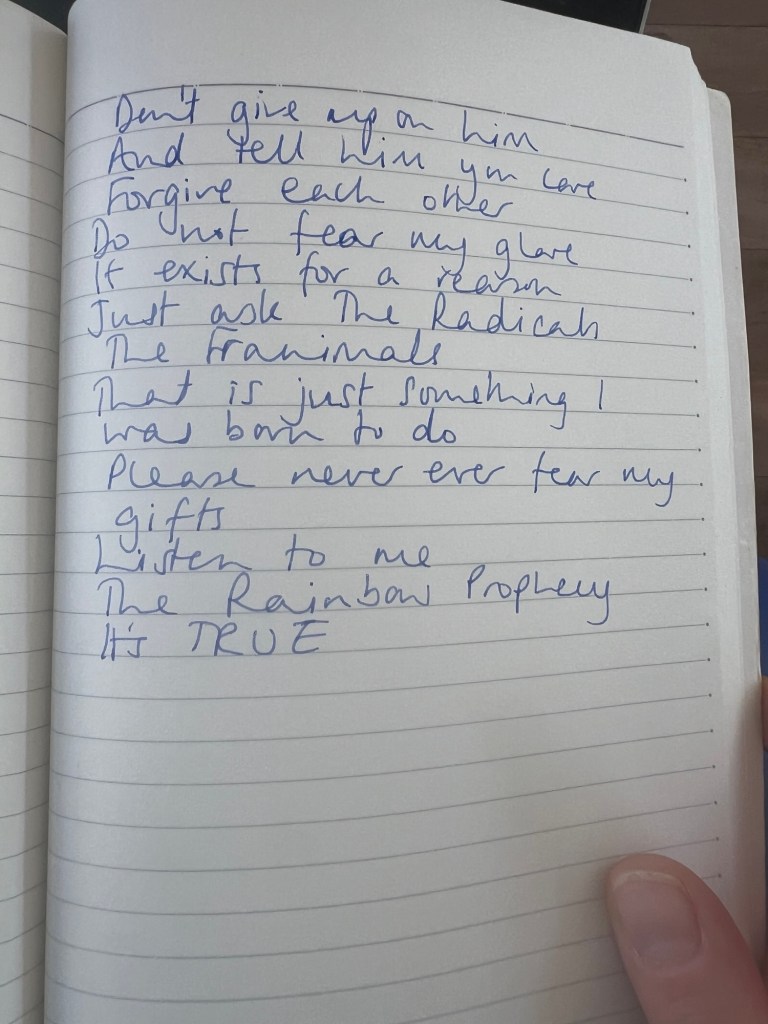 Don't give up on him
And tell him you care
Forgive each other
Do not fear my glare
It exists for a reason
Just ask The Radicals
The Franimals
That is just something I
was born to do
Please never ever fear my
gifts
Listen to me
The Rainbow Prophecy
It's TRUE